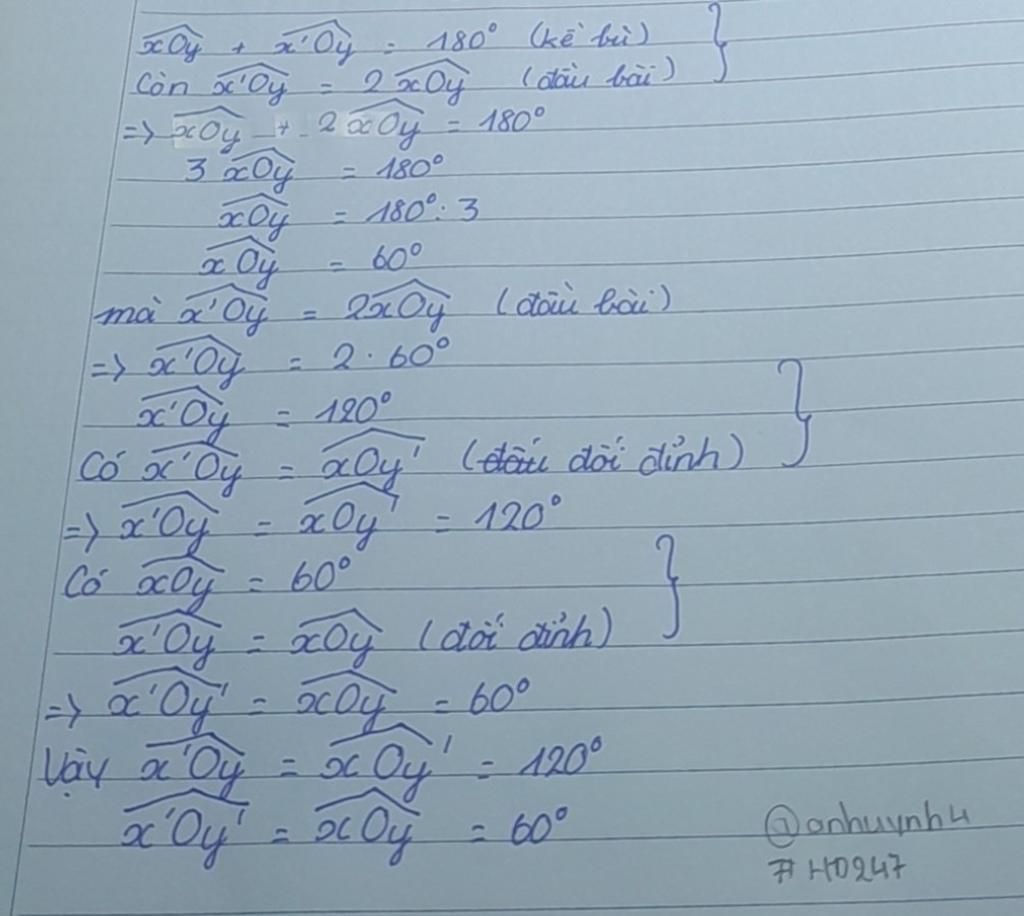 xOy + x'Oy = 180° (kề bù)
Còn x'Oy = 2xOy (đầu bài)
=> xOy + 2xOy = 180°
3xOy = 180°
xOy = 180° : 3
xOy = 60°
mà x'Oy = 2xOy (đầu bài)
=> x'Oy = 2 . 60°
x'Oy = 120°
Có x'Oy = xOy' (đối đỉnh)
=> x'Oy = xOy' = 120°
Có xOy = 60°
x'Oy = xOy (đối đỉnh)
=> x'Oy' = xOy = 60°
Vậy x'Oy = xOy' = 120°
x'Oy' = xOy = 60°
@anhuynh4
#HD247